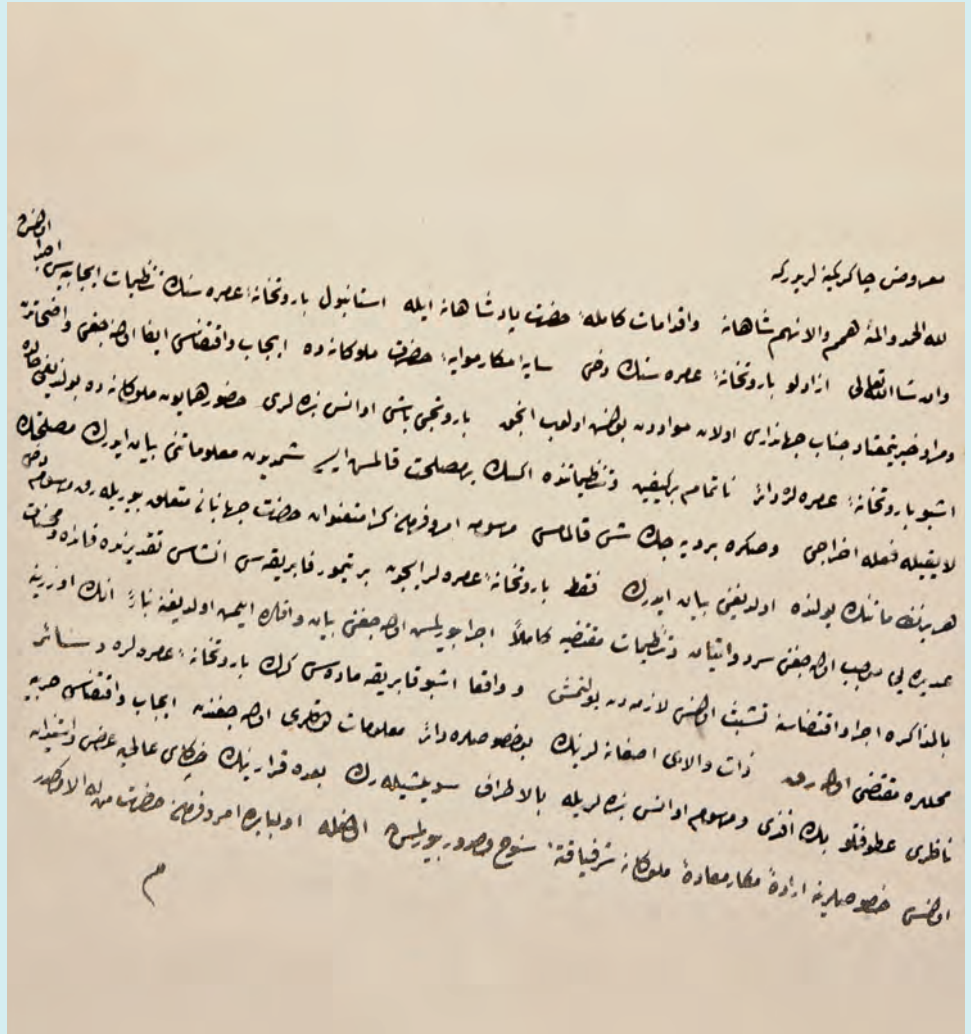 معروض چاكر كمينه لريدر كه
لله الحمد والمنه همم والانهم شاهانه واقدامات كاملهٔ حضرت پادشاهانه ايله استانبول باروتخانهٔ عامره سنك تنظيمات ايجابيه سى اجرا اولنمش
وان شا الله تعالى ازادلو باروتخانهٔ عامره سنك دخى سايهٔ مكارموايهٔ حضرت ملوكانه ده ايجاب واقتضاسى ايفا اوله جغى واضحاتدن
ومراد خيريتمعتاد جناب جهاندارى اولان موادون بولنمش اولوب انجق باروتجى باشى اوانس بنده لرى حضور همايون ملوكانه ده بولنديغى حالده
اشبو باروتخانهٔ عامره لره دائر ناتمام بر كيفيت وتنظيماتنده اكسك بر مصلحت قالمش ايسه شمديدن معلوماتنى بيان ايدرك مصلحتك
لايقيله فعله اخراجى وصكره برديه جك شى قالمامسى مرسومه امر وفرمان كرامتعنوان حضرت جهانبانى متعلق بيوريله رق مرسوم دخى
هر برينك ماتنك يولنده اولديغنى بيان ايدرك فقط باروتخانهٔ عامره لر ايچون بر تيمور فابريقه سى انشاسى تقديرنده فائده ومحسنات
عديده يى موجب اوله جغنى سرد واتيان وتنظيمات مقتضيه كاملاً اجرا بيورلمش اوله جغنى بيان وافاده ايتمش اولديغنه بناءً انك اوزرينه
بالمذاكره اجرا واقتضاسنه تشبث اولنمسى لازمه دن بولنمش و واقعا اشبو فابريقه ماده سى كرك باروتخانهٔ عامره لره وسائر
محللره مقتضى اوله رق ذات والاى اصفانه لرينك بو خصوصلره دائر معلومات لرى اوله جغندن ايجاب واقتضاسى حربيه
ناظرى عطوفتلو بك افندى ومرسوم اوانس بنده لريله بالاطراف سويلشيله رك بعده قرارينك خاكپاى عالى يه عرض واستيذان
اولنمسى خصوصلرينه ارادهٔ مكارمعادهٔ ملوكانه شرفياقتهٔ سنوح وصدور بيورلمش اولمغله اولبابده امر وفرمان حضرت من له الامركدر
م